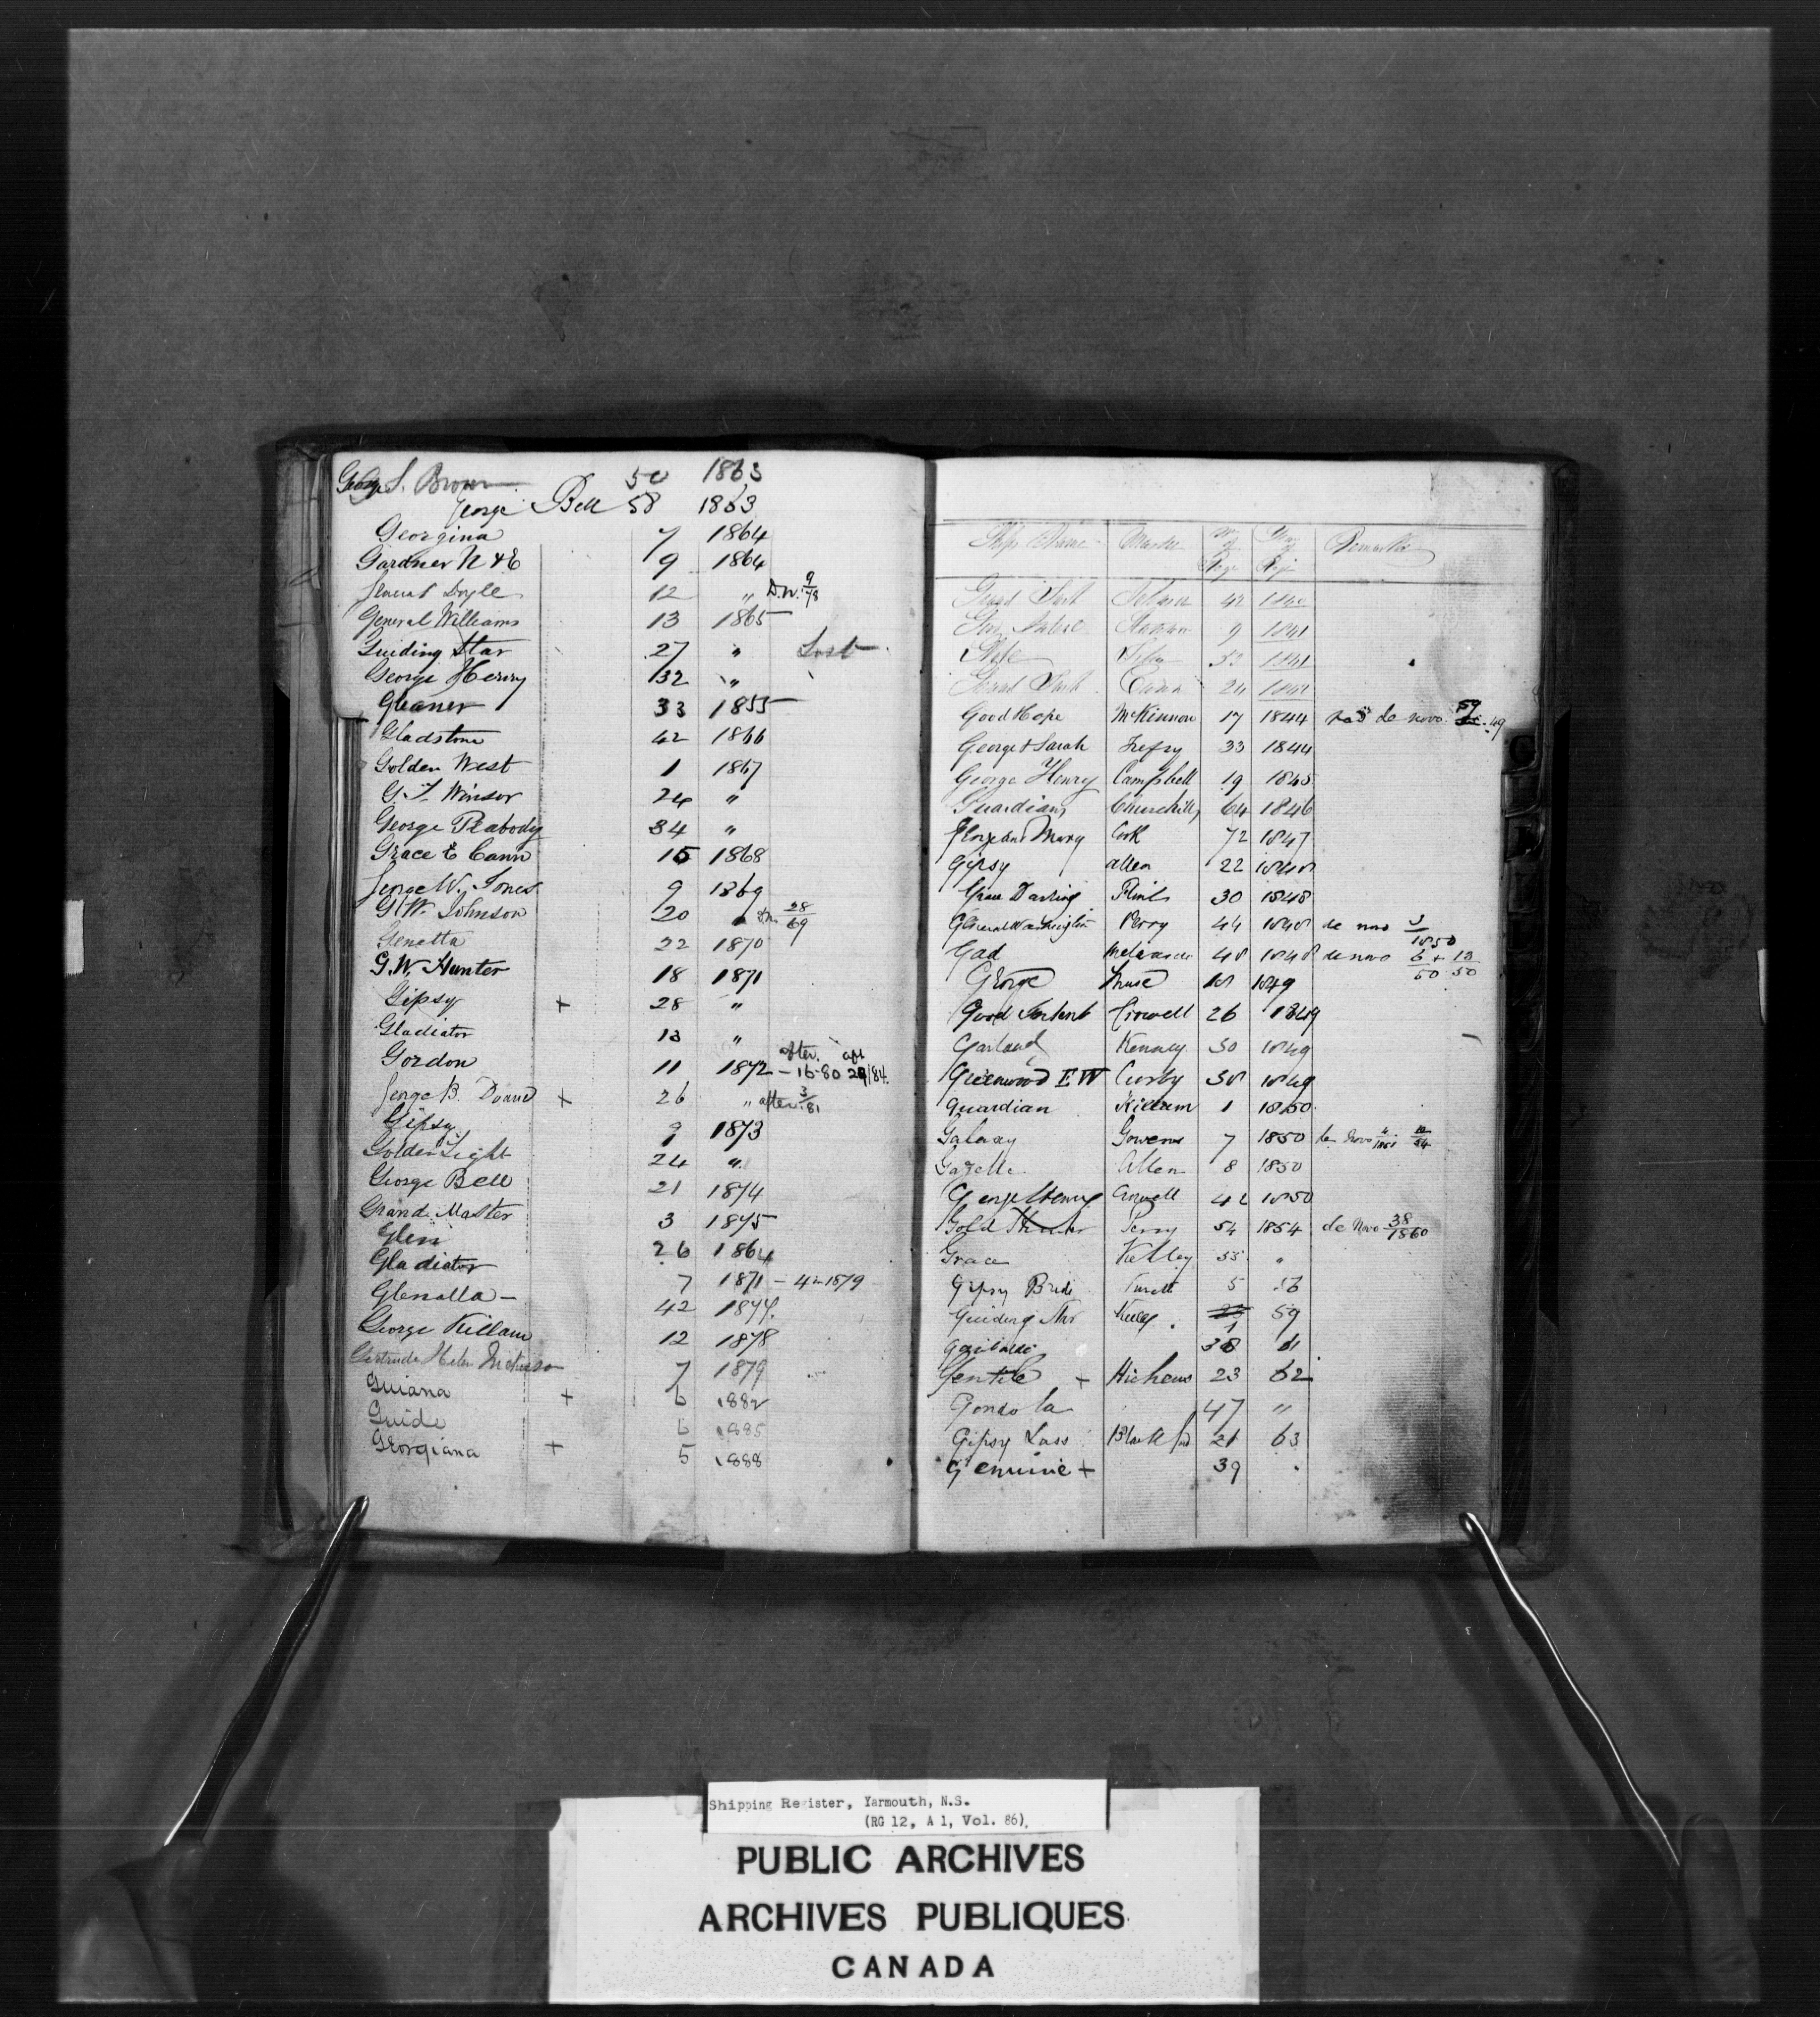 George S. Brown 50 1863
George Bell 58 1863
Georgina 7 1864
Gardner N & E 9 1864
General Doyle 12 " D.N. 9/78
General Williams 13 1865
Guiding Star 27 " Lost
George Henry 32 "
Gleaner 33 1855
Gladstone 42 1866
Golden West 1 1867
G. T. Winsor 24 "
George Peabody 34 "
Grace E Cann 15 1868
George W. Jones 9 1869
G. W. Johnson 20 " D.N. 28/69
Genetta 22 1870
G. W. Hunter 18 1871
Gipsy + 28 "
Gladiator 13 "
Gordon 11 1872 - after 16-80 29/84
George B. Doane + 26 " after 3/81
Gipsy 9 1873
Golden Light 24 "
George Bell 21 1874
Grand Master 3 1875
Glen 26 1864
Gladiator 7 1871 - 42 1879
Glenalla - 42 1877
George Killam 12 1878
Gertrude Helen 7 1879
Guiana + 6 1882
Guide 6 1885
Georgiana + 5 1888
Ships Name Master No of Page Year of Regr Remarks
42 1840
9 1841
33 1841
24 1842
Good Hope McKinnon 17 1844 de novo 59 49
George & Sarah Trefry 33 1844
George Henry Campbell 19 1845
Guardian Churchill 64 1846
George and Mary Cook 72 1847
Gipsy Allen 22 1848
Grace Darling Flint 30 1848
General Washington Perry 44 1848 de novo 3/1850
Gad 48 1848 de novo 6/50 + 13/50
George Muse 18 1849
Good Intent Crowell 26 1849
Garland Kenney 30 1849
Greenwood E W Crosby 38 1849
Guardian Killam 1 1850
Galway Gowens 7 1850 de novo 4/1851 12/54
Gazelle Allen 8 1850
George Henry Crowell 42 1850
Gold Hunter Perry 54 1854 de novo 38/1860
Grace Kelley 55 "
Gipsy Bride 5 56
Guiding Star Kelley 1 59
Garibaldi 38 61
Gentile + Hichens 23 62
Gondola 47 "
Gipsy Lass Blackford 21 63
Genuine + 39
Shipping Register, Yarmouth, N.S.
(RG 12, A 1, Vol. 86)
PUBLIC ARCHIVES
ARCHIVES PUBLIQUES
CANADA